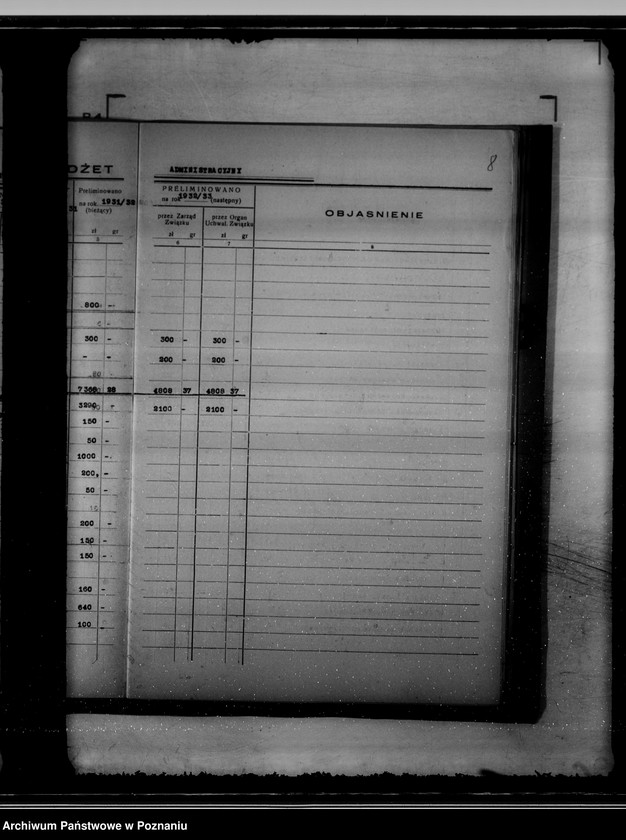 8
DŻET ADMINISTRACYJNY
Preliminowano
na rok 1931/32
(bieżący)
PRELIMINOWANO
na rok 1932/33 (następny)
OBJAŚNIENIE
przez Zarząd Związku
przez Organ Uchwal. Związku
zł gr zł gr zł gr
5 6 7 8
800 -
300 - 300 - 300 -
- - 200 - 200 -
28 4808 37 4808 37
3290 - 2100 - 2100 -
150 -
50 -
1000 -
200 -
50 -
200 -
150 -
150 -
160 -
640 -
100 -
Archiwum Państwowe w Poznaniu